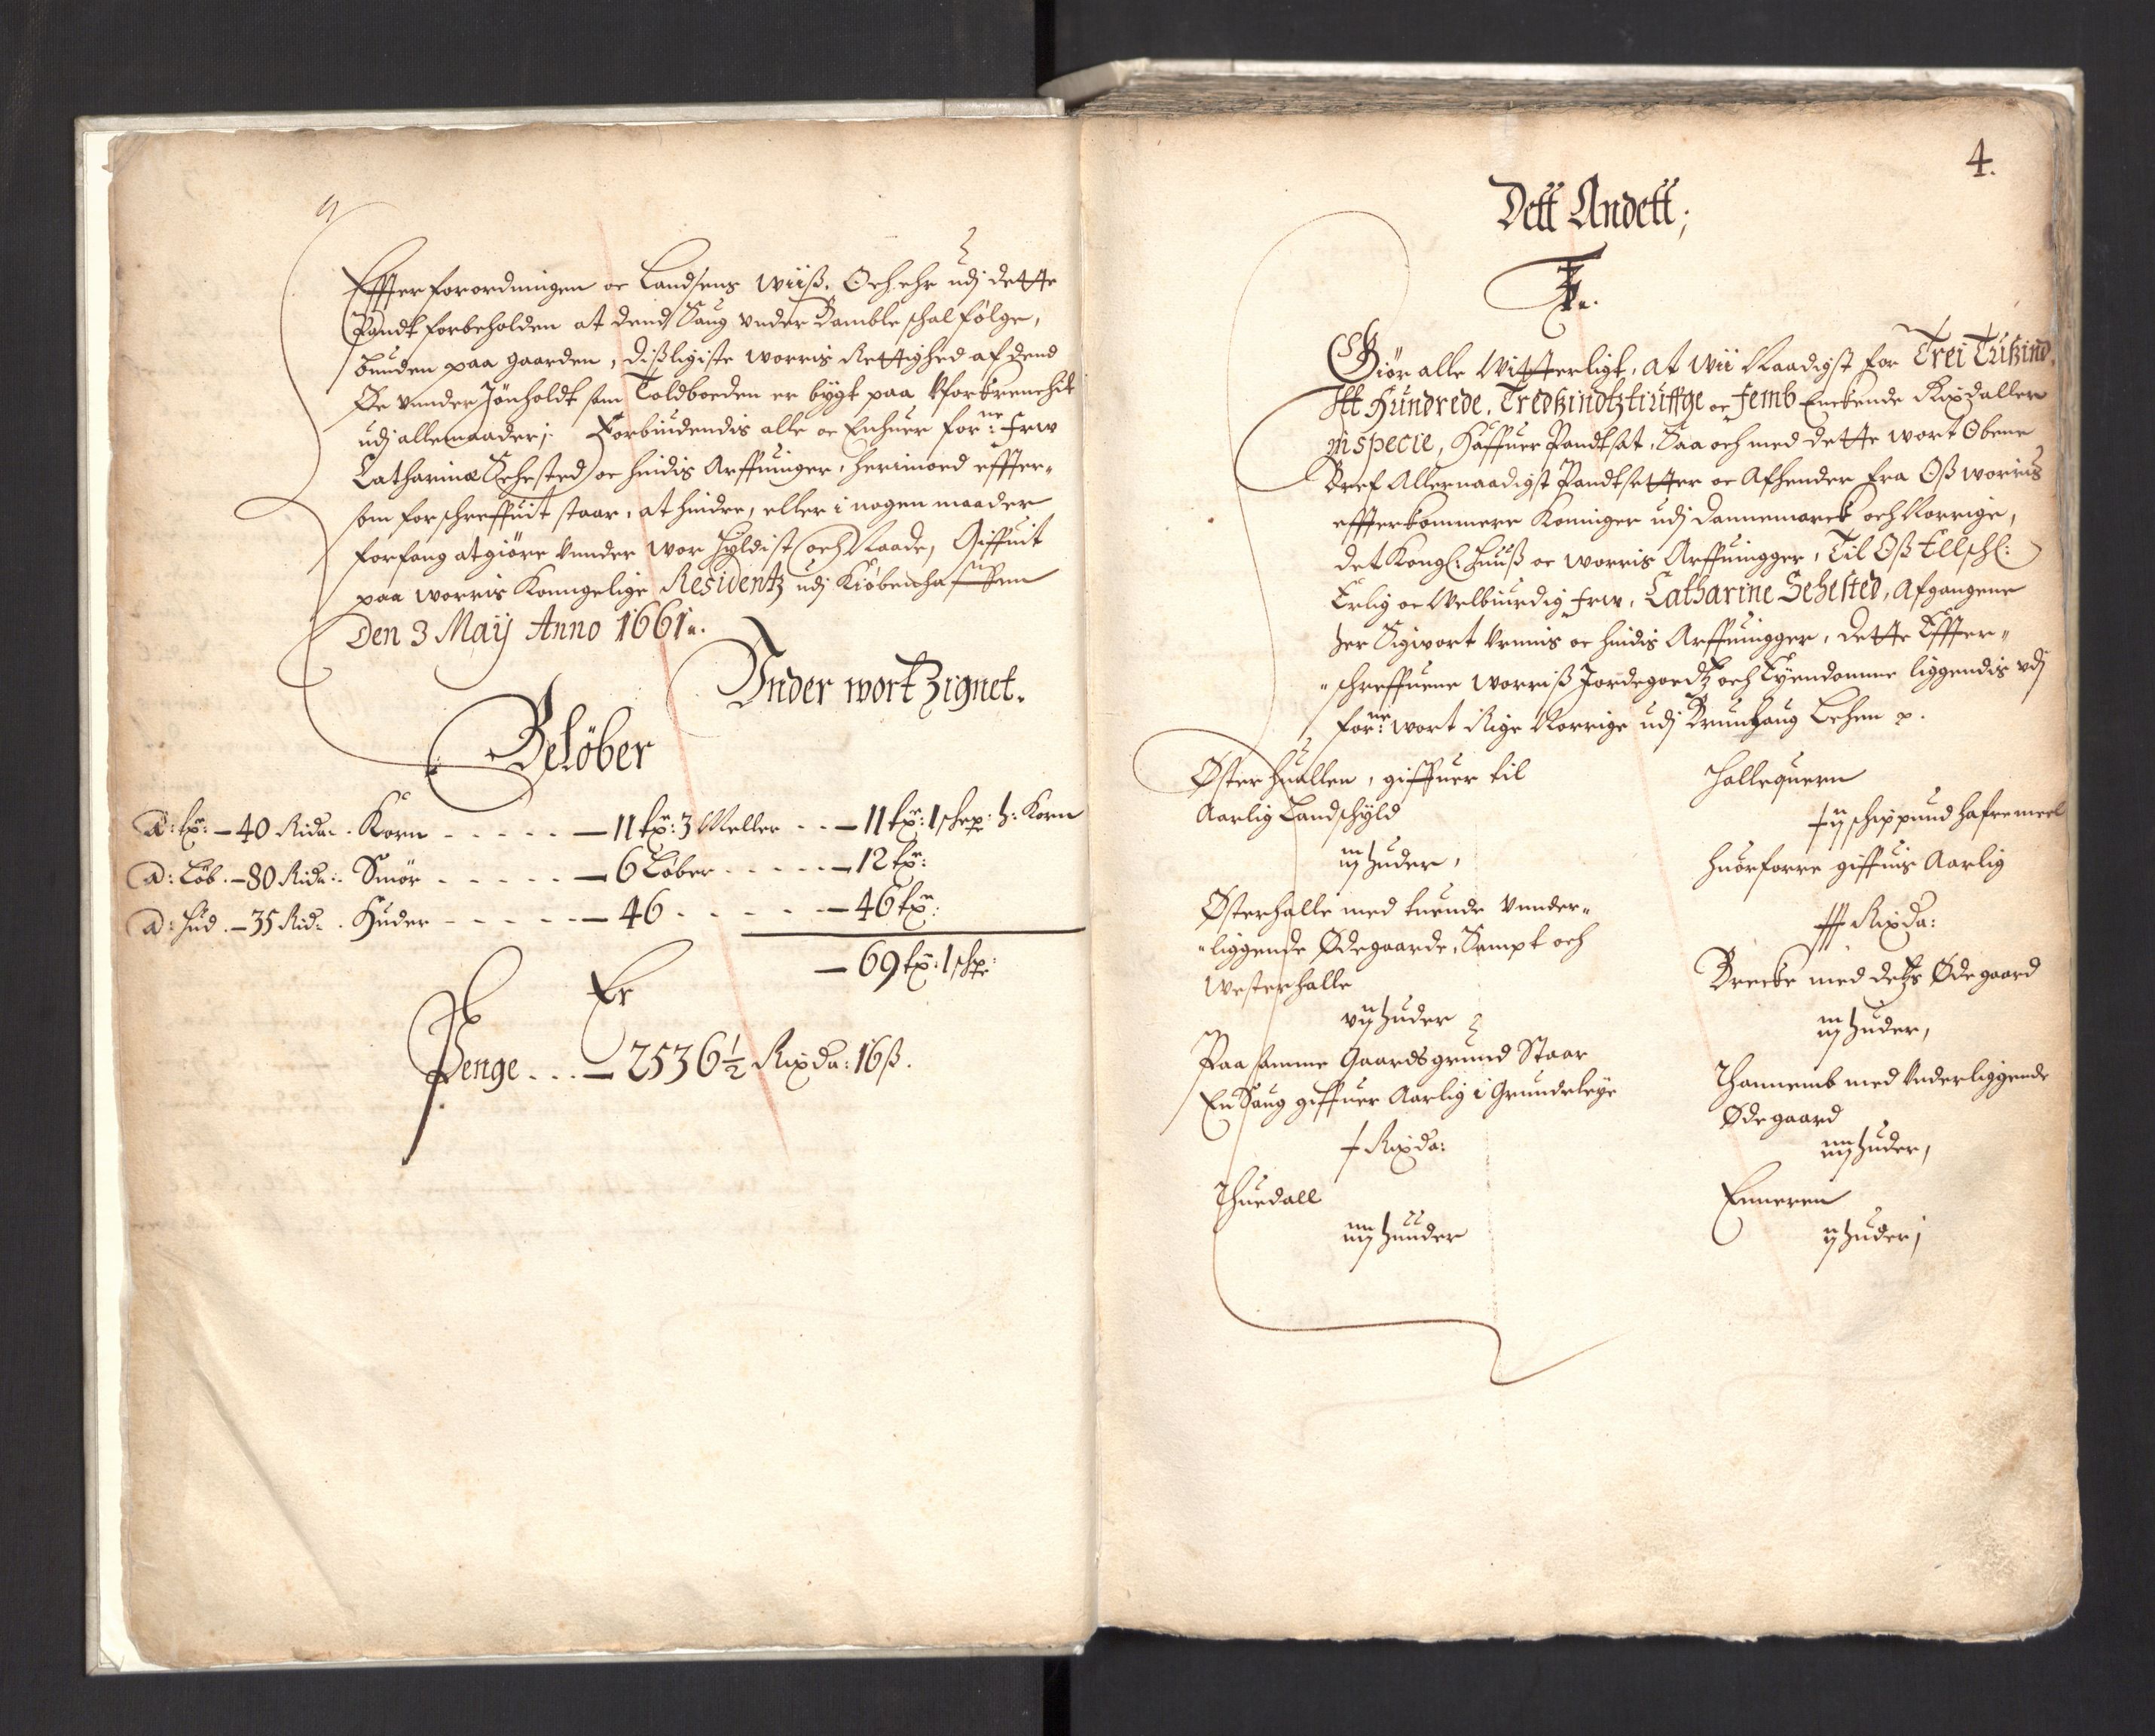 Effter forordningen oc Landsens wiiß. Och ehr udj dette
Pandt forbeholden at dend Saug under Bamble schal følge,
bunden paa gaarden, dißligiste worris Rettighed af dend
Øe vnnder Jönholdt som Toldboeden er bygt paa
udj allemaader; Forbiudendis alle oc Enhuer for:ne Frw
Catharina Sehested oc hindis Arffuinger, herimoed effter-
som forschreffuit staar, at hindre, eller i nogen maader
forfang at giöre vnnder wor Hyldist och Naade, Giffuit
paa worris Konngelige Residentz udj Kiöbenhaffuen
Den 3 Maij Anno 1661.
Vnder wort Zignet.
Belöber
a: tx: - 40 Rida. Korn - - - - - - 11 tx: 3 Meller - - - 11 tx: 1 schep: h: Korn
a: Löb. - 80 Rida. Smör - - - - - - 6 Løber - - - - - 12 tx:
a: Hud. - 35 Rid. Huder - - - - - - 46 - - - - - - 46 tx:
- 69 tx: 1 schp:
Er
Penge - - - 2536½ Rixda: 16 ß.
4.
Dett Andett;
F. 3.
Giör alle Witterligt, at Wii Naadigst for Trei Tußind,
Itt Hundrede, Tredßindtztiuffge oc Femb Enckende Rixdaller
in specie, Haffuer Pandtsat, Saa och med dette wort Obene
Bref Allernaadigst Pandtsetter oc Afhender fra Oß worris
effterkommere Koninger udj Dannemarck och Norrige,
det Kongl: Huuß oc worris Arffuingger, Til Oß Ellschl:
Erlig oc Welbiurdig Frw, Catharine Sehested, Afgangene
her Sigwort Vrnnis oc hindis Arffuingger, dette Effter-
schreffuene worriß Jordegoedtz och Eyendomme liggendis vdj
for:ne wort Rige Norrige udj Brunlaug Lehen p.
Østerhuallen, giffuer til
Aarlig Landschyld
iij huder,
Østerhalle med tuende vnnder-
liggende Ødegaarde, Sampt och
Westerhalle
vij huder
Paa samme Gaards grund Staar
En Saug giffuer Aarlig i Grundeleye
j Rixda:
Thuedall
iiij huuder
Hallequern
ij schippund hafremeel
huorforre giffuis Aarlig
Rixda:
Brecke med detz Ødegaard
iij huder,
Thannemb med Vnderliggende
Ødegaard
iiij huder,
Enneren
ij huder;